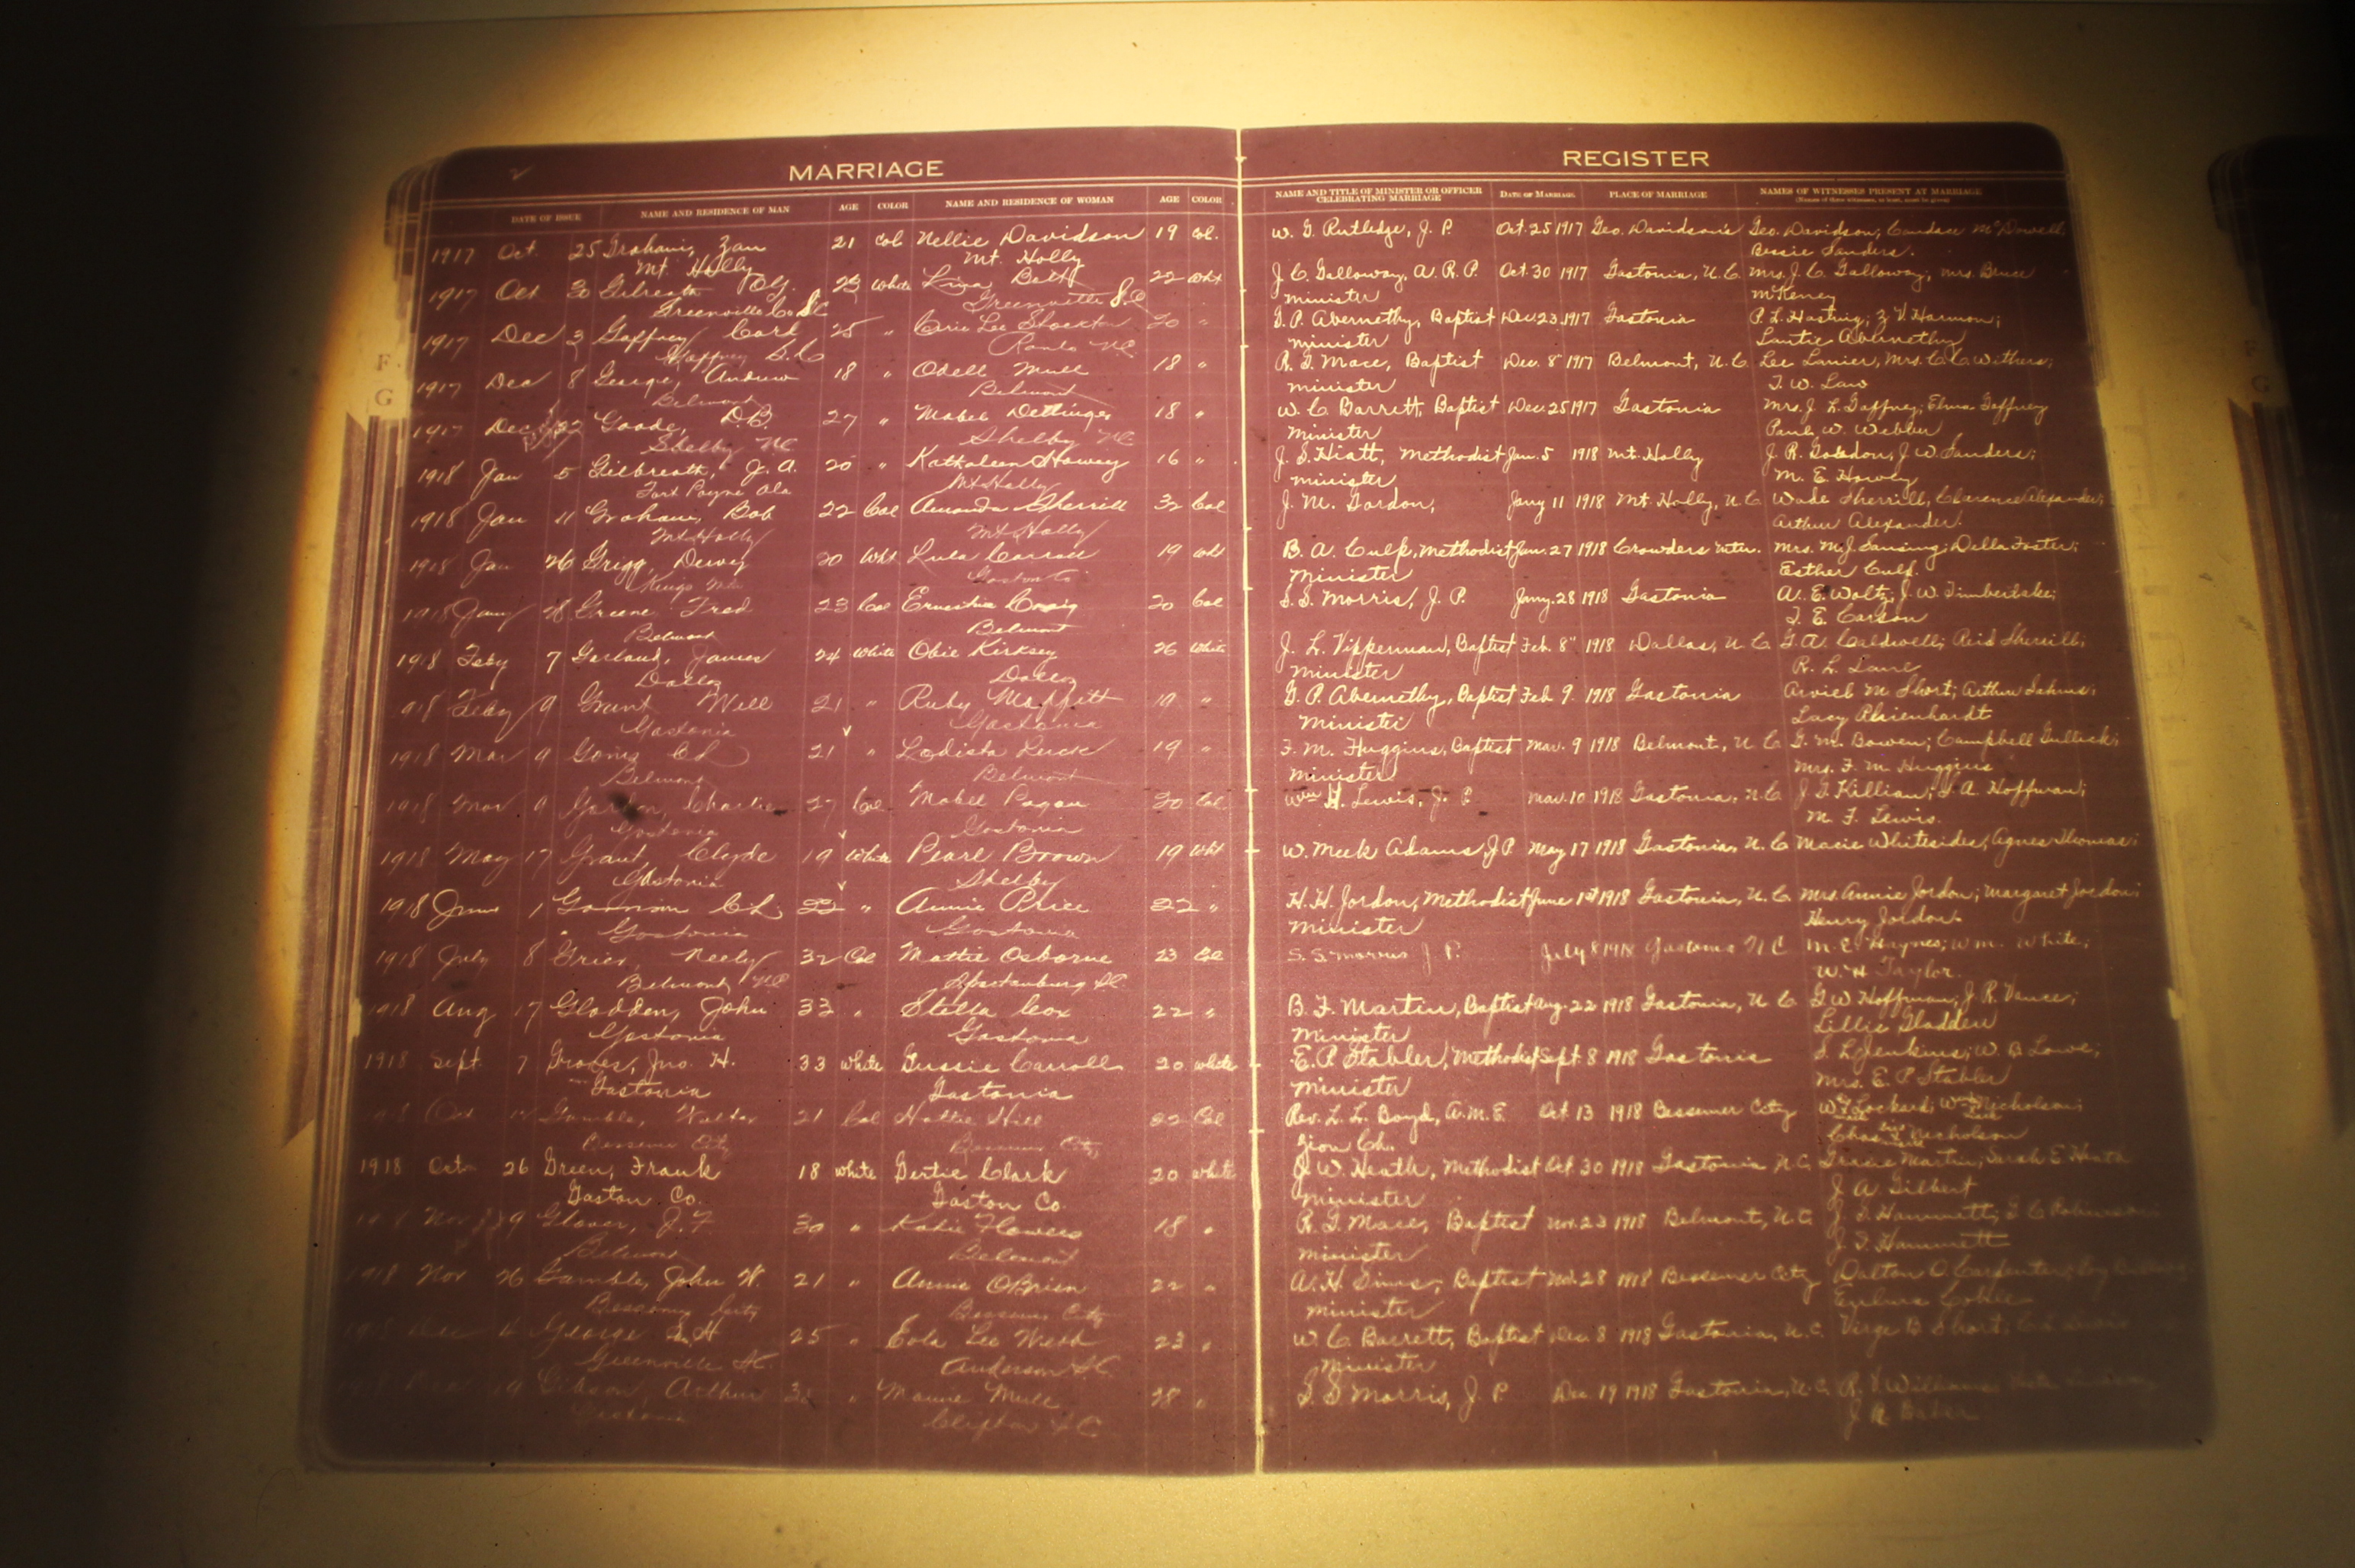 MARRIAGE
REGISTER
DATE OF ISSUE NAME AND RESIDENCE OF MAN AGE COLOR NAME AND RESIDENCE OF WOMAN AGE COLOR
NAME AND TITLE OF MINISTER OR OFFICER CELEBRATING MARRIAGE DATE OF MARRIAGE PLACE OF MARRIAGE NAMES OF WITNESSES PRESENT AT MARRIAGE
F
G
1917 Oct. 25 Graham, Zan 21 Col Nellie Davidson 19 Col. W. G. Rutledge, J. P. Oct. 25 1917 Geo. Davidson's Geo. Davidson; Candace McDowell,
Mt. Holly Mt. Holly Bessie Sanders.
1917 Oct 30 Gilreath 23 White 22 Wht J. C. Galloway, A. R. P. Oct. 30 1917 Gastonia, N. C. Mrs. J. C. Galloway; Mrs. Bruce
Greenville Co. S.C Greenville S.C minister McKeney
1917 Dec 3 Gaffney Carl 25 " Carrie Lee Stockton 20 " G. P. Abernethy, Baptist Dec. 23 1917 Gastonia P. L. Hasting; Z. V. Harmon;
Gaffney S.C Ranlo NC minister Abernethy
1917 Dec 8 George, Andrew 18 " Odell Mull 18 " R. G. Mace, Baptist Dec. 8" 1917 Belmont, N. C. Lee Lanier, Mrs. C. C. Withers;
Belmont Belmont minister T. W. Law
1917 Dec 22 Goode, D.B. 27 " Mabel Dellinger 18 " W. C. Barrett, Baptist Dec. 25 1917 Gastonia Mrs. J. L. Gaffney; Elma Gaffney
Shelby NC Shelby NC minister Paul W. Webber
1918 Jan 5 Gilbreath, J. A. 20 " Kathaleen Howey 16 " J. S. Hiatt, Methodist Jan. 5 1918 Mt. Holly J. W. Sanders;
Fort Payne Ala Mt Holly minister M. E.
1918 Jan 11 Graham, Bob 22 Col Amanda Sherrill 32 Col J. M. Gordon, Jany 11 1918 Mt Holly, N. C. Wade Sherrill, Clarence Alexander,
Mt Holly Mt Holly Arthur Alexander.
1918 Jan 26 Grigg, Dewey 20 Wht Lula Carroll 19 Wht B. A. Culp, Methodist Jan. 27 1918 Crowders Mtn. Mrs. M. J. Lansing; Della Foster;
Kings Mtn Gaston Co minister Esther Culp.
1918 Jany 28 Greene, Fred 23 Col Ernestine Craig 20 Col S. S. Morris, J. P. Jany. 28 1918 Gastonia A. E. Woltz, J. W. Timberlake;
Belmont Belmont T. E. Carson
1918 Feby 7 Garland, James 24 White Obie Kirksey 26 White J. L. Vipperman, Baptist Feb. 8" 1918 Dallas, N. C. G. A. Caldwell; Reid Sherrill;
Dallas Dallas minister R. L. Lane
1918 Feby 9 Grant Will 21 " Ruby Moffitt 19 " G. P. Abernethy, Baptist Feb 9 1918 Gastonia M. Short; Arthur
Gastonia Gastonia minister Lacy Rhienhardt
1918 Mar 9 C L 21 " Luck 19 " F. M. Huggins, Baptist Mar. 9 1918 Belmont, N. C. G. M. Bowen; Campbell Gullick;
Belmont Belmont minister Mrs. F. M. Huggins
1918 Mar 9 Charlie 27 Col Mabel Pagan 20 Col Wm H. Lewis, J. P. Mar. 10 1918 Gastonia, N. C. J. G. Killian; A. Hoffman;
Gastonia Gastonia M. F. Lewis.
1918 May 17 Grant, Clyde 19 White Pearl Brown 19 Wht W. Meek Adams, J P. May 17 1918 Gastonia, N. C. Macie Whitesides, Agnes Thomas;
Gastonia Shelby
1918 June 1 Garrison C. L. 22 " Annie Price 22 " H. H. Jordon, Methodist June 1st 1918 Gastonia, N. C. Mrs. Annie Jordon; Margaret Jordon;
Gastonia Gastonia minister Henry Jordon.
1918 July 8 Grier, Neely 32 Col Mattie Osborne 23 Col S. S. Morris J. P. July 8 1918 Gastonia N C M. C. Haynes; Wm. White;
Belmont NC Spartanburg SC W. H Taylor.
1918 Aug 17 Gladden, John 33 " Stella Cox 22 " B. F. Martin, Baptist Aug. 22 1918 Gastonia, N. C. G. W Hoffman; J. R. Vance;
Gastonia Gastonia minister Lillie Gladden
1918 Sept. 7 Groves, Jno. H. 33 White Gussie Carroll 20 white E. P. Stabler, Methodist Sept. 8 1918 Gastonia S. L. Jenkins; W. B Lowe;
Gastonia Gastonia minister Mrs. E. P Stabler
Oct 12 Gamble, Walter 21 Col Hattie Hill 22 Col Rev. L. L. Boyd, A. M. E. Oct 13 1918 Bessemer City Lockard; Nicholson;
Bessemer City Bessemer City Zion Ch. Chas Nicholson
1918 Oct 26 Green, Frank 18 White Gertie Clark 20 white J. W. Heath, Methodist Oct. 30 1918 Gastonia N.C. Martin; Sarah E. Heath
Gaston Co. Gaston Co. minister J. A. Gilbert
Nov 9 Glover, J. F 30 " Katie Flowers 18 " R. G. Mace, Baptist Nov. 23 1918 Belmont, N. C. J. T. Hammett;
Belmont Belmont minister J. T. Hammett
1918 Nov 26 Gamble, John W. 21 " Annie OBrien 22 " A. H. Sims, Baptist Nov. 28 1918 Bessemer City Dalton O. Carpenter;
Bessemer City Bessemer City minister
George S. H 25 " Eola Lee Webb 23 " W. C. Barrett, Baptist Dec. 8 1918 Gastonia, N. C. Virge B Short;
Greenville SC. Anderson S.C. minister
19 Gibson, Arthur " Mull 28 " S. S Morris, J. P. Dec. 19 1918 Gastonia, N. C.
Gastonia Clifton S C J. R. Baber